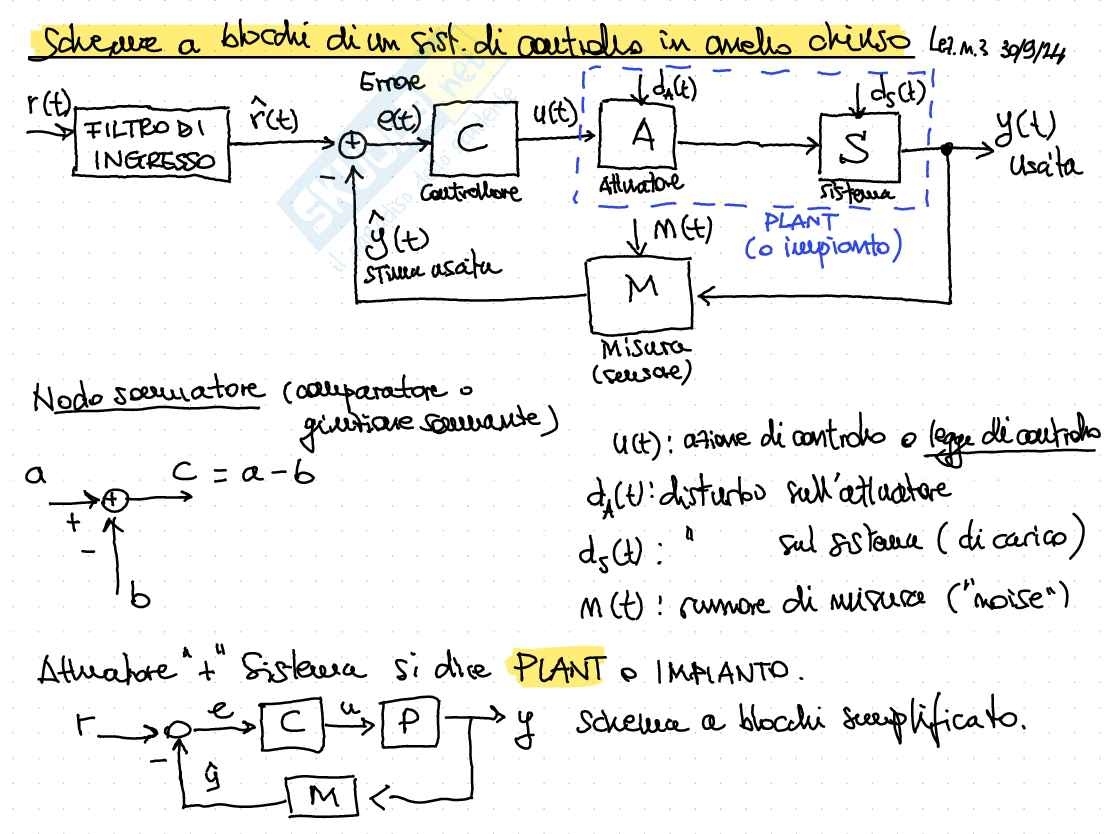 Schema a blocchi di un sist. di controllo in anello chiuso Lez. n. 3 30/9/24
r(t) FILTRO DI INGRESSO r̂(t) + − Errore e(t) C Controllore u(t) d_A(t) A Attuatore d_S(t) S Sistema y(t) Uscita
PLANT
(o impianto)
ŷ(t)
stima uscita
n(t)
M
Misura
(sensore)
Nodo sommatore (comparatore o
giunzione sommante)
a + − b c = a - b
u(t): azione di controllo o legge di controllo
d_A(t): disturbo sull'attuatore
d_S(t): " sul sistema (di carico)
n(t): rumore di misura ("noise")
Attuatore "+" Sistema si dice PLANT o IMPIANTO.
r − e C u P y schema a blocchi semplificato.
ŷ M